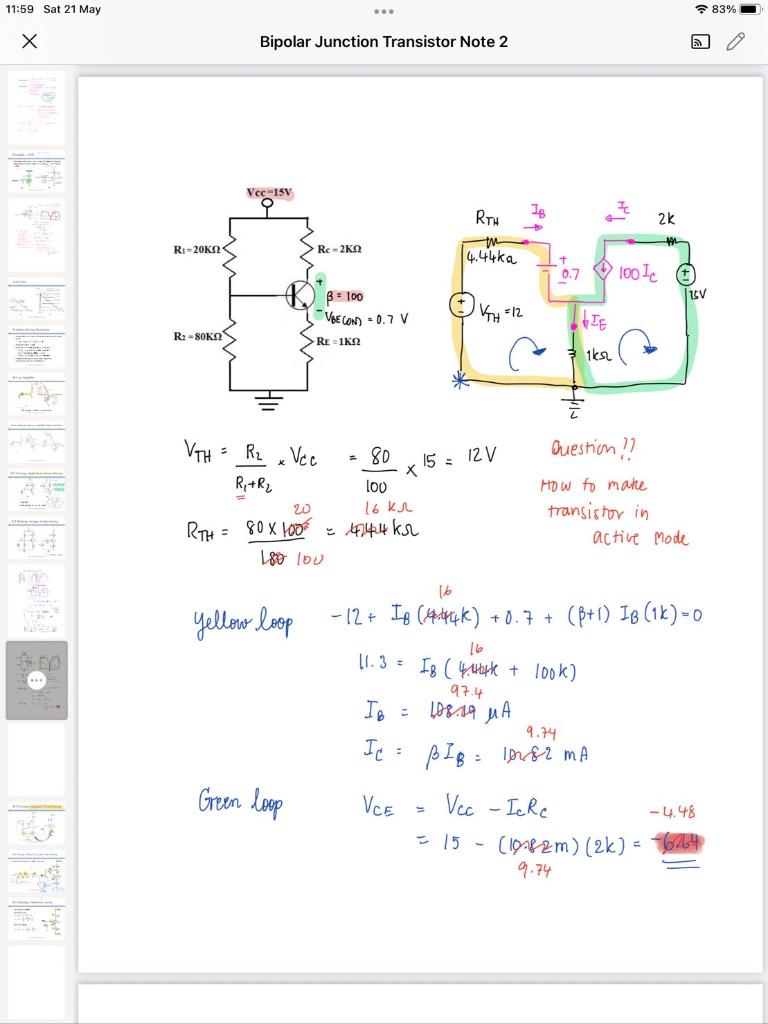 11:59 Sat 21 May
83%
Bipolar Junction Transistor Note 2
Vcc=15V
R1=20KΩ
Rc=2KΩ
+
β = 100
-
VBE(ON) = 0.7 V
R2=80KΩ
RE=1KΩ
RTH
IB
Ic
2k
4.44kΩ
+
0.7
-
100 Ic
+
-
15V
+
-
VTH=12
IE
1kΩ
VTH = R2 / R1+R2 × Vcc = 80 / 100 × 15 = 12V
Question??
How to make
transistor in
active Mode
20
16 kΩ
RTH = 80 × 100 / 180 = 4.44 kΩ
100
16
Yellow loop -12 + IB (4.44k) + 0.7 + (β+1) IB (1k) = 0
16
11.3 = IB (4.44k + 100k)
97.4
IB = 108.19 μA
9.74
Ic = βIB = 10.82 mA
Green loop VCE = Vcc - IcRc
-4.48
= 15 - (10.82m)(2k) = -6.64
9.74